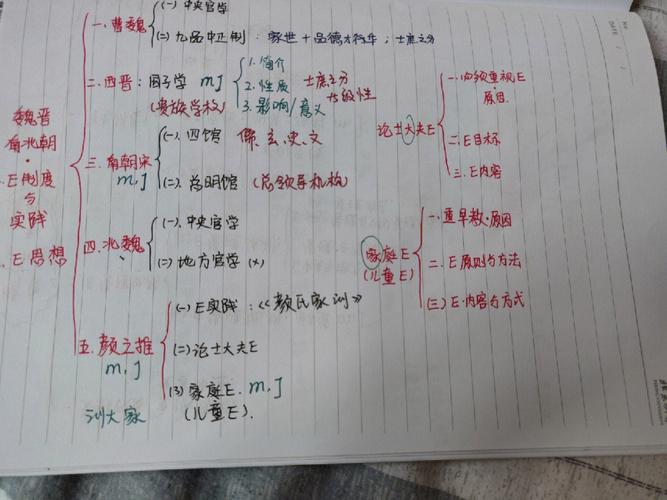 魏晋
南北朝
·E制度
与
实践
·E思想
一.曹魏
(一)中央官学
(二)九品中正制：家世+品德才行状；士庶之分
二.西晋：国子学 m.J
(贵族学校)
1.简介
2.性质 士庶之分
等级性
3.影响/意义
三.南朝宋
m.J
(一).四馆 儒.玄.史.文
(二).总明馆 (总领导机构)
四.北魏
(一).中央官学
(二)地方官学(x)
五.颜之推
m.J
(一)E实践：《颜氏家训》
(二)论士大夫E
(3)家庭E. m.J
(儿童E).
论士大夫E
一.必须重视E
原因.
二.E目标
三.E内容
家庭E
(儿童E)
一.重早教·原因
二.E原则与方法
(三)E·内容与方式
大家
DATE